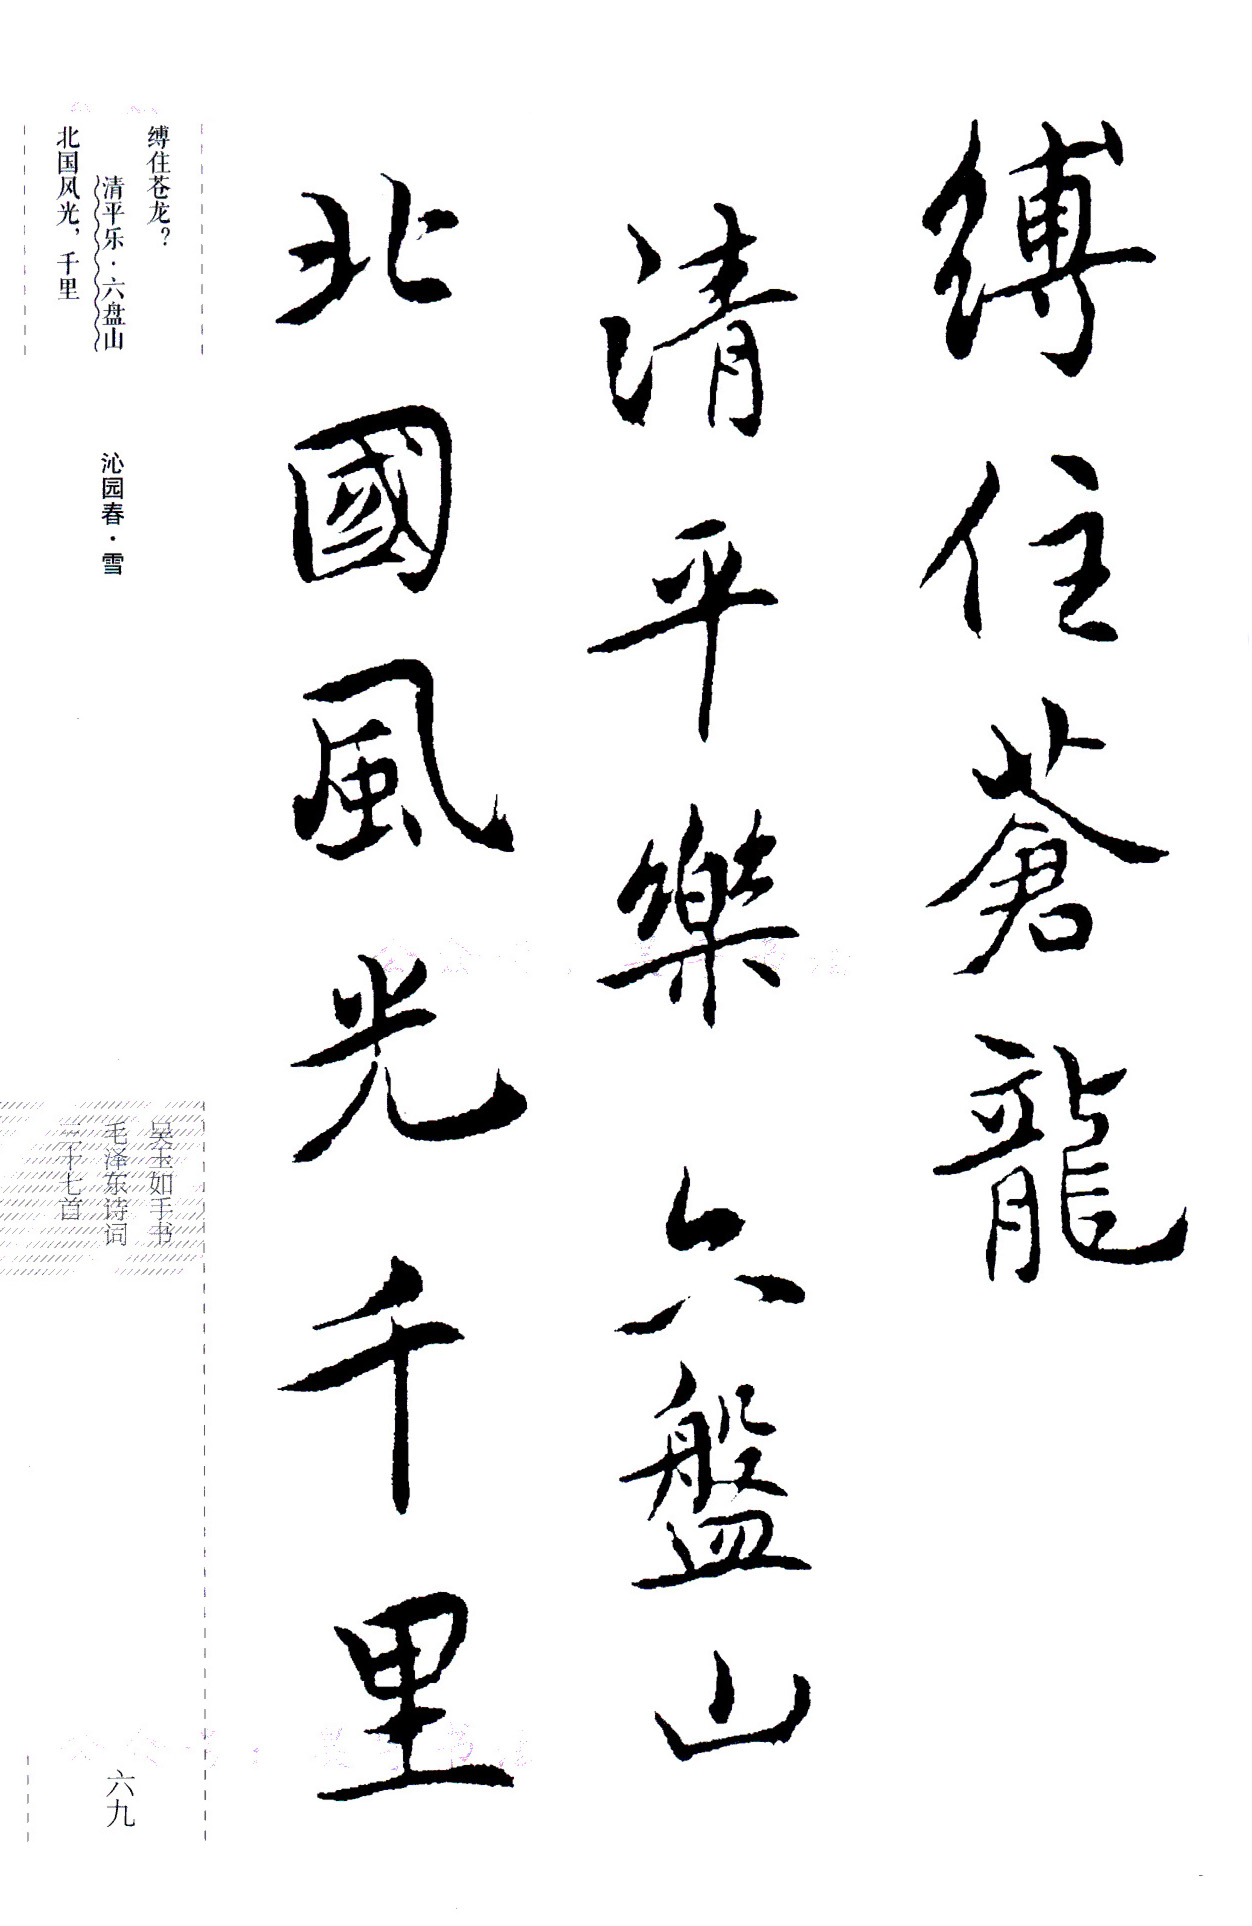 縛住蒼龍
清平樂六盤山
北國風光千里
缚住苍龙？
清平乐·六盘山
北国风光，千里
沁园春·雪
吴玉如手书
毛泽东诗词
三十七首
六九